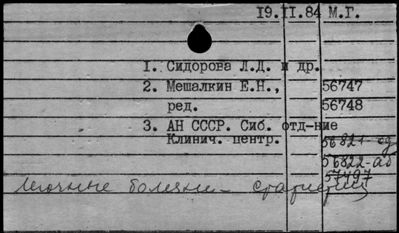 19.II.84 М.Г.
1. Сидорова Л.Д. и др.
2. Мешалкин Е.Н., 56747
ред. 56748
3. АН СССР. Сиб. отд-ние
Клинич. центр. 56821-
56822-аб
57497
Легочные болезни -